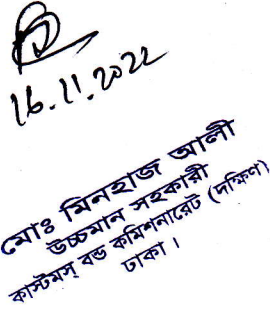 16.11.2022
মোঃ মিনহাজ আলী
উচ্চমান সহকারী
কাস্টমস্ বন্ড কমিশনারেট (দক্ষিণ)
ঢাকা।